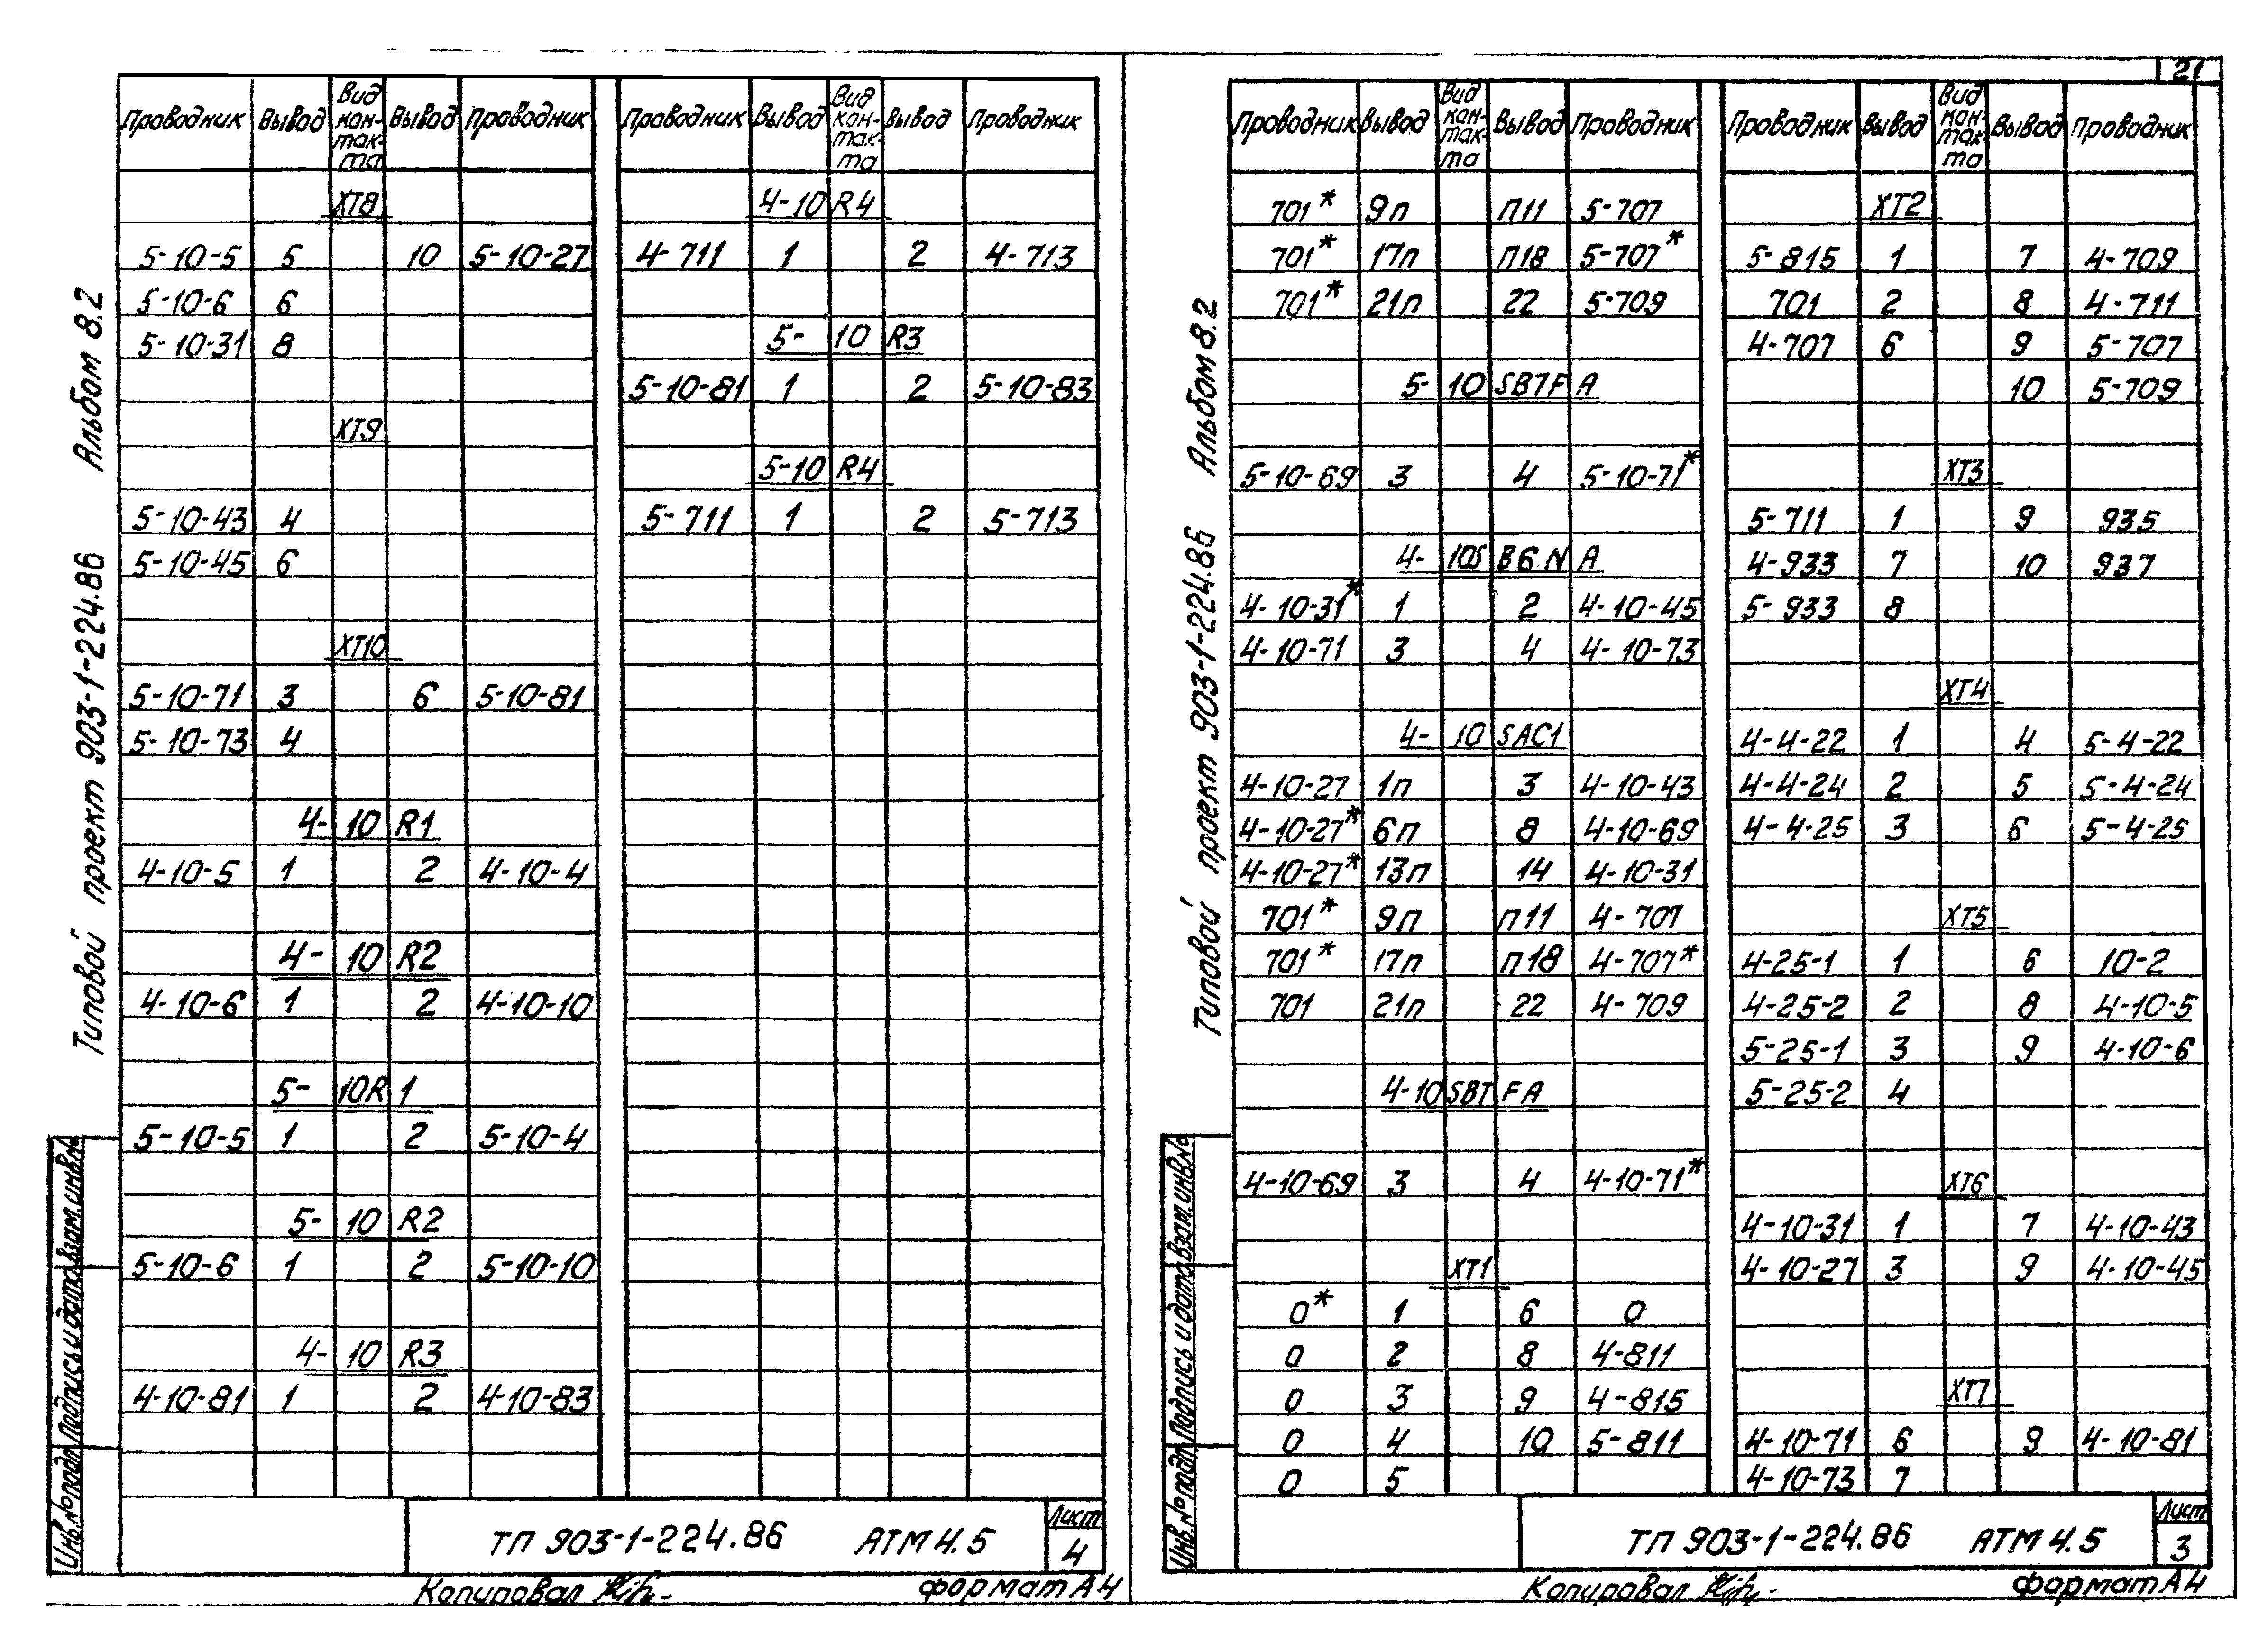 Альбом 8.2
Типовой проект 903-1-224.86
Проводник Вывод Вид кон-такта Вывод Проводник
XT8
5-10-5 5 10 5-10-27
5-10-6 6
5-10-31 8
XT9
5-10-43 4
5-10-45 6
XT10
5-10-71 3 6 5-10-81
5-10-73 4
4-10R1
4-10-5 1 2 4-10-4
4-10R2
4-10-6 1 2 4-10-10
5-10R1
5-10-5 1 2 5-10-4
5-10R2
5-10-6 1 2 5-10-10
4-10R3
4-10-81 1 2 4-10-83
Проводник Вывод Вид кон-так-та Вывод Проводник
4-10R4
4-711 1 2 4-713
5-10R3
5-10-81 1 2 5-10-83
5-10R4
5-711 1 2 5-713
Инв.№ подл. Подпись и дата Взам.инв.№
ТП 903-1-224.86 АТМ 4.5
Лист
4
Копировал
формат А4
21
Альбом 8.2
Типовой проект 903-1-224.86
Проводник Вывод Вид кон-так-та Вывод Проводник
701* 9п П11 5-707
701* 17п П18 5-707*
701* 21п 22 5-709
5-10SB7FA
5-10-69 3 4 5-10-71*
4-10SB6NA
4-10-31* 1 2 4-10-45
4-10-71 3 4 4-10-73
4-10SAC1
4-10-27 1п 3 4-10-43
4-10-27* 6п 8 4-10-69
4-10-27* 13п 14 4-10-31
701* 9п П11 4-707
701* 17п П18 4-707*
701 21п 22 4-709
4-10SB7FA
4-10-69 3 4 4-10-71*
XT1
0* 1 6 0
0 2 8 4-811
0 3 9 4-815
0 4 10 5-811
0 5
Проводник Вывод Вид кон-так-та Вывод Проводник
XT2
5-815 1 7 4-709
701 2 8 4-711
4-707 6 9 5-707
10 5-709
XT3
5-711 1 9 935
4-933 7 10 937
5-933 8
XT4
4-4-22 1 4 5-4-22
4-4-24 2 5 5-4-24
4-4-25 3 6 5-4-25
XT5
4-25-1 1 6 10-2
4-25-2 2 8 4-10-5
5-25-1 3 9 4-10-6
5-25-2 4
XT6
4-10-31 1 7 4-10-43
4-10-27 3 9 4-10-45
XT7
4-10-71 6 9 4-10-81
4-10-73 7
Инв.№ подл. Подпись и дата Взам.инв.№
ТП 903-1-224.86 АТМ 4.5
Лист
3
Копировал
формат А4